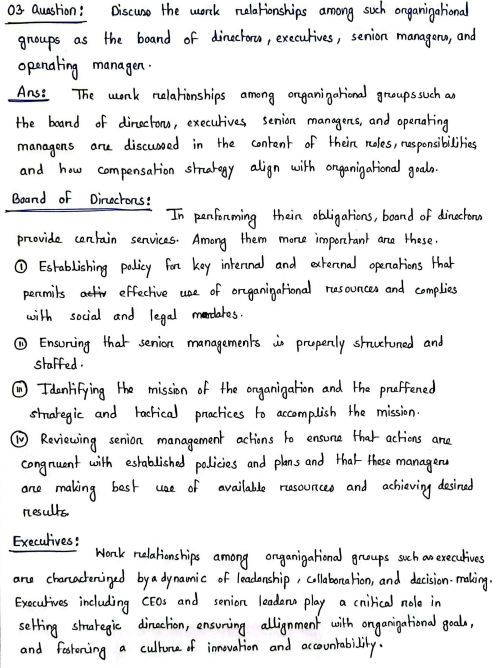 03. Question: Discuss the work relationships among such organizational
groups as the board of directors, executives, senior managers, and
operating manager.
Ans: The work relationships among organizational groups such as
the board of directors, executives, senior managers, and operating
managers are discussed in the content of their roles, responsibilities
and how compensation strategy align with organizational goals.
Board of Directors:
In performing their obligations, board of directors
provide certain services. Among them more important are these.
(i) Establishing policy for key internal and external operations that
permits effective use of organizational resources and complies
with social and legal mandates.
(ii) Ensuring that senior managements is properly structured and
staffed.
(iii) Identifying the mission of the organization and the preffered
strategic and tactical practices to accomplish the mission.
(iv) Reviewing senior management actions to ensure that actions are
congruent with established policies and plans and that these managers
are making best use of available resources and achieving desired
results
Executives:
Work relationships among organizational groups such as executives
are characterized by a dynamic of leadership, collaboration, and decision-making.
Executives including CEOs and senior leaders play a critical role in
setting strategic direction, ensuring allignment with organizational goals,
and fostering a culture of innovation and accountability.